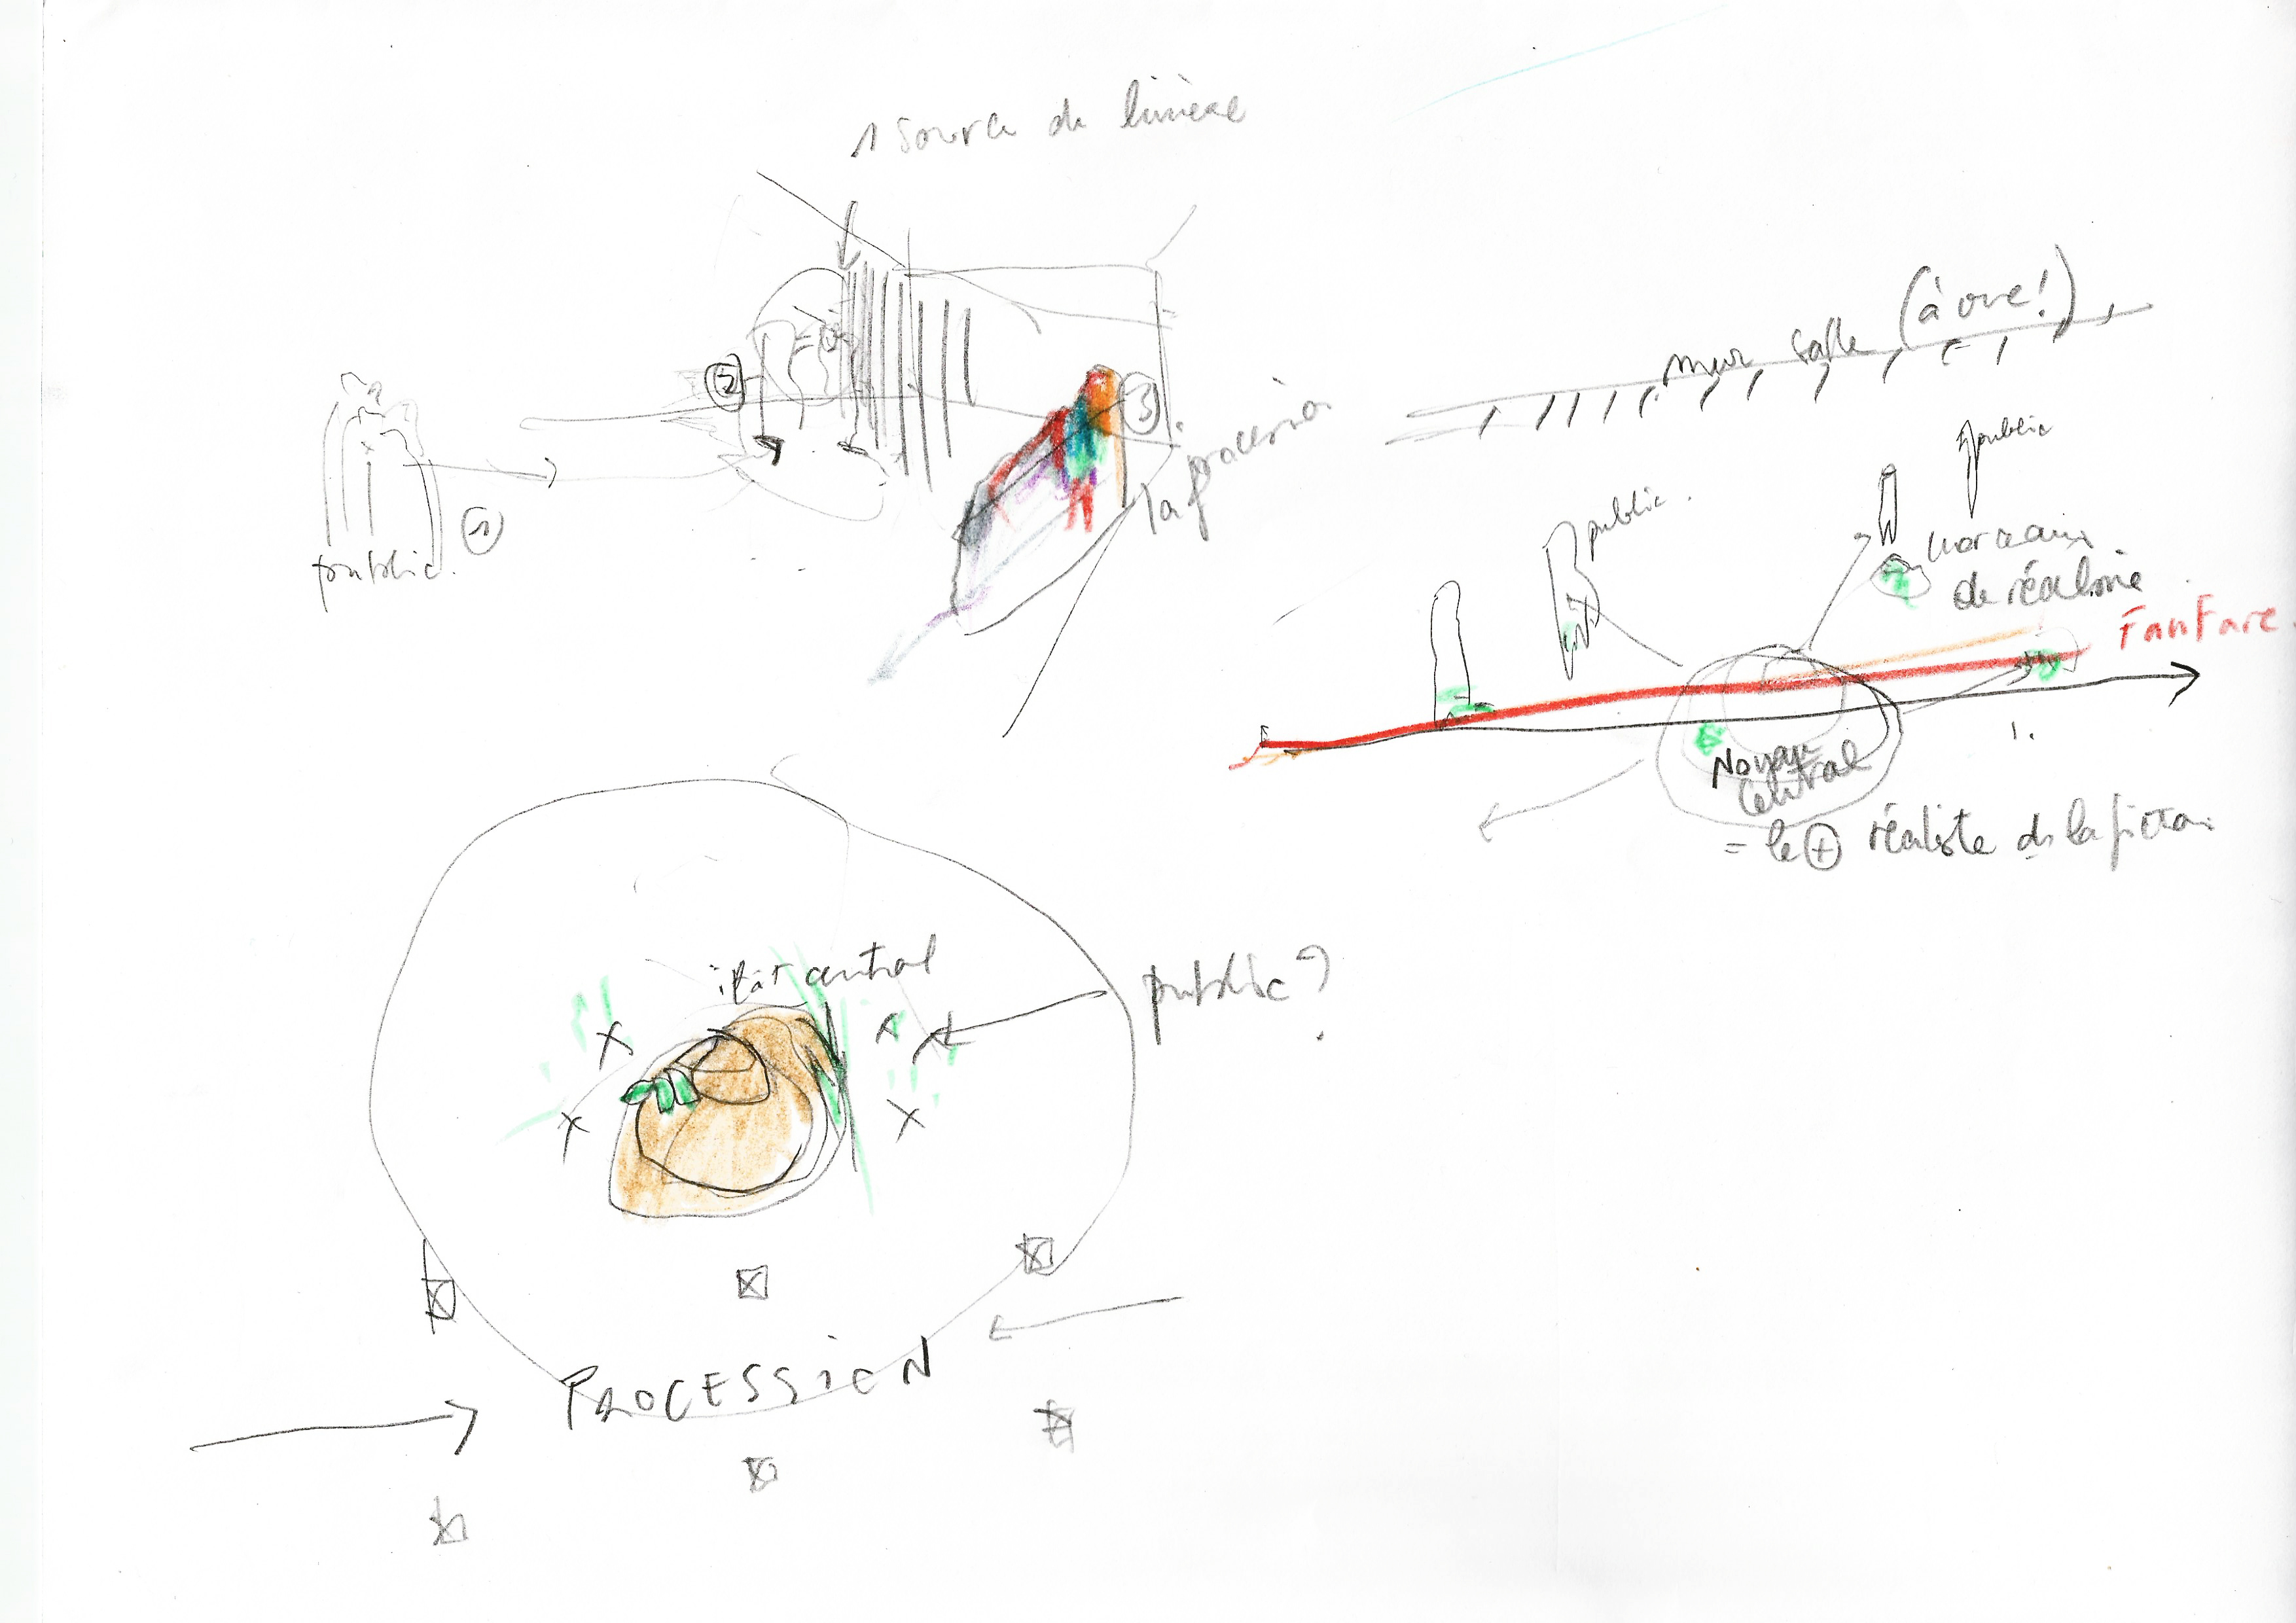 1 source de lumière
2
3
la procession
public.
1
mur salle (à vue!)
public
public.
morceaux
de réalisme
Fanfare
Noyau
central
= le + réaliste ds la fiction
ilôt central
public?
PROCESSION